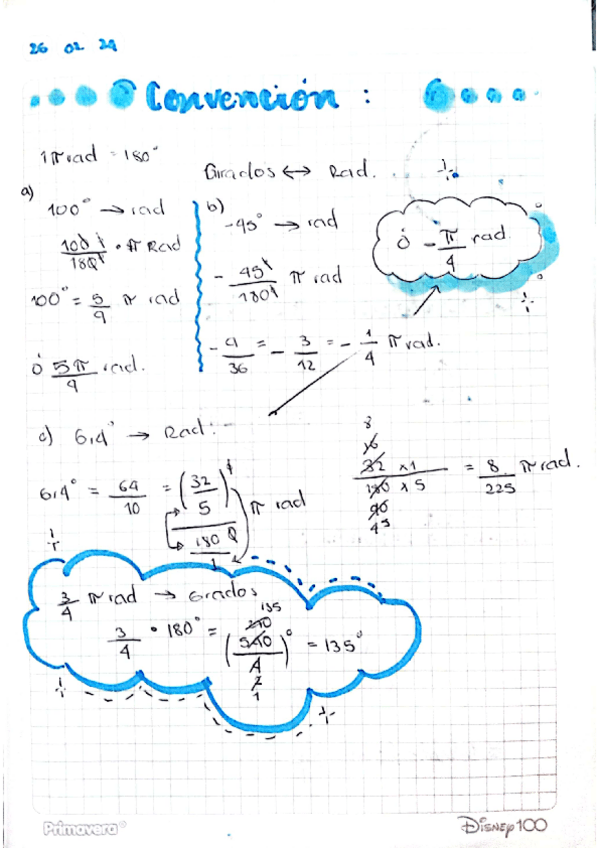 26 02 24
Convención :
1π rad = 180°
Grados ↔ Rad.
a)
100° → rad
100/180 • π Rad
100° = 5/9 π rad
ó 5π/9 rad.
b)
-45° → rad
- 45/180 π rad
- 9/36 = - 3/12 = - 1/4 π rad.
ó - π/4 rad
c) 6,4° → Rad:
6,4° = 64/10 = (32/5) / (180/1) π rad
8
16
32 x 1 / 180 x 5 = 8/225 π rad.
90
45
3/4 π rad → Grados
135
270
3/4 • 180° = (540/4)° = 135°
2
1
Primavera®
Disney 100